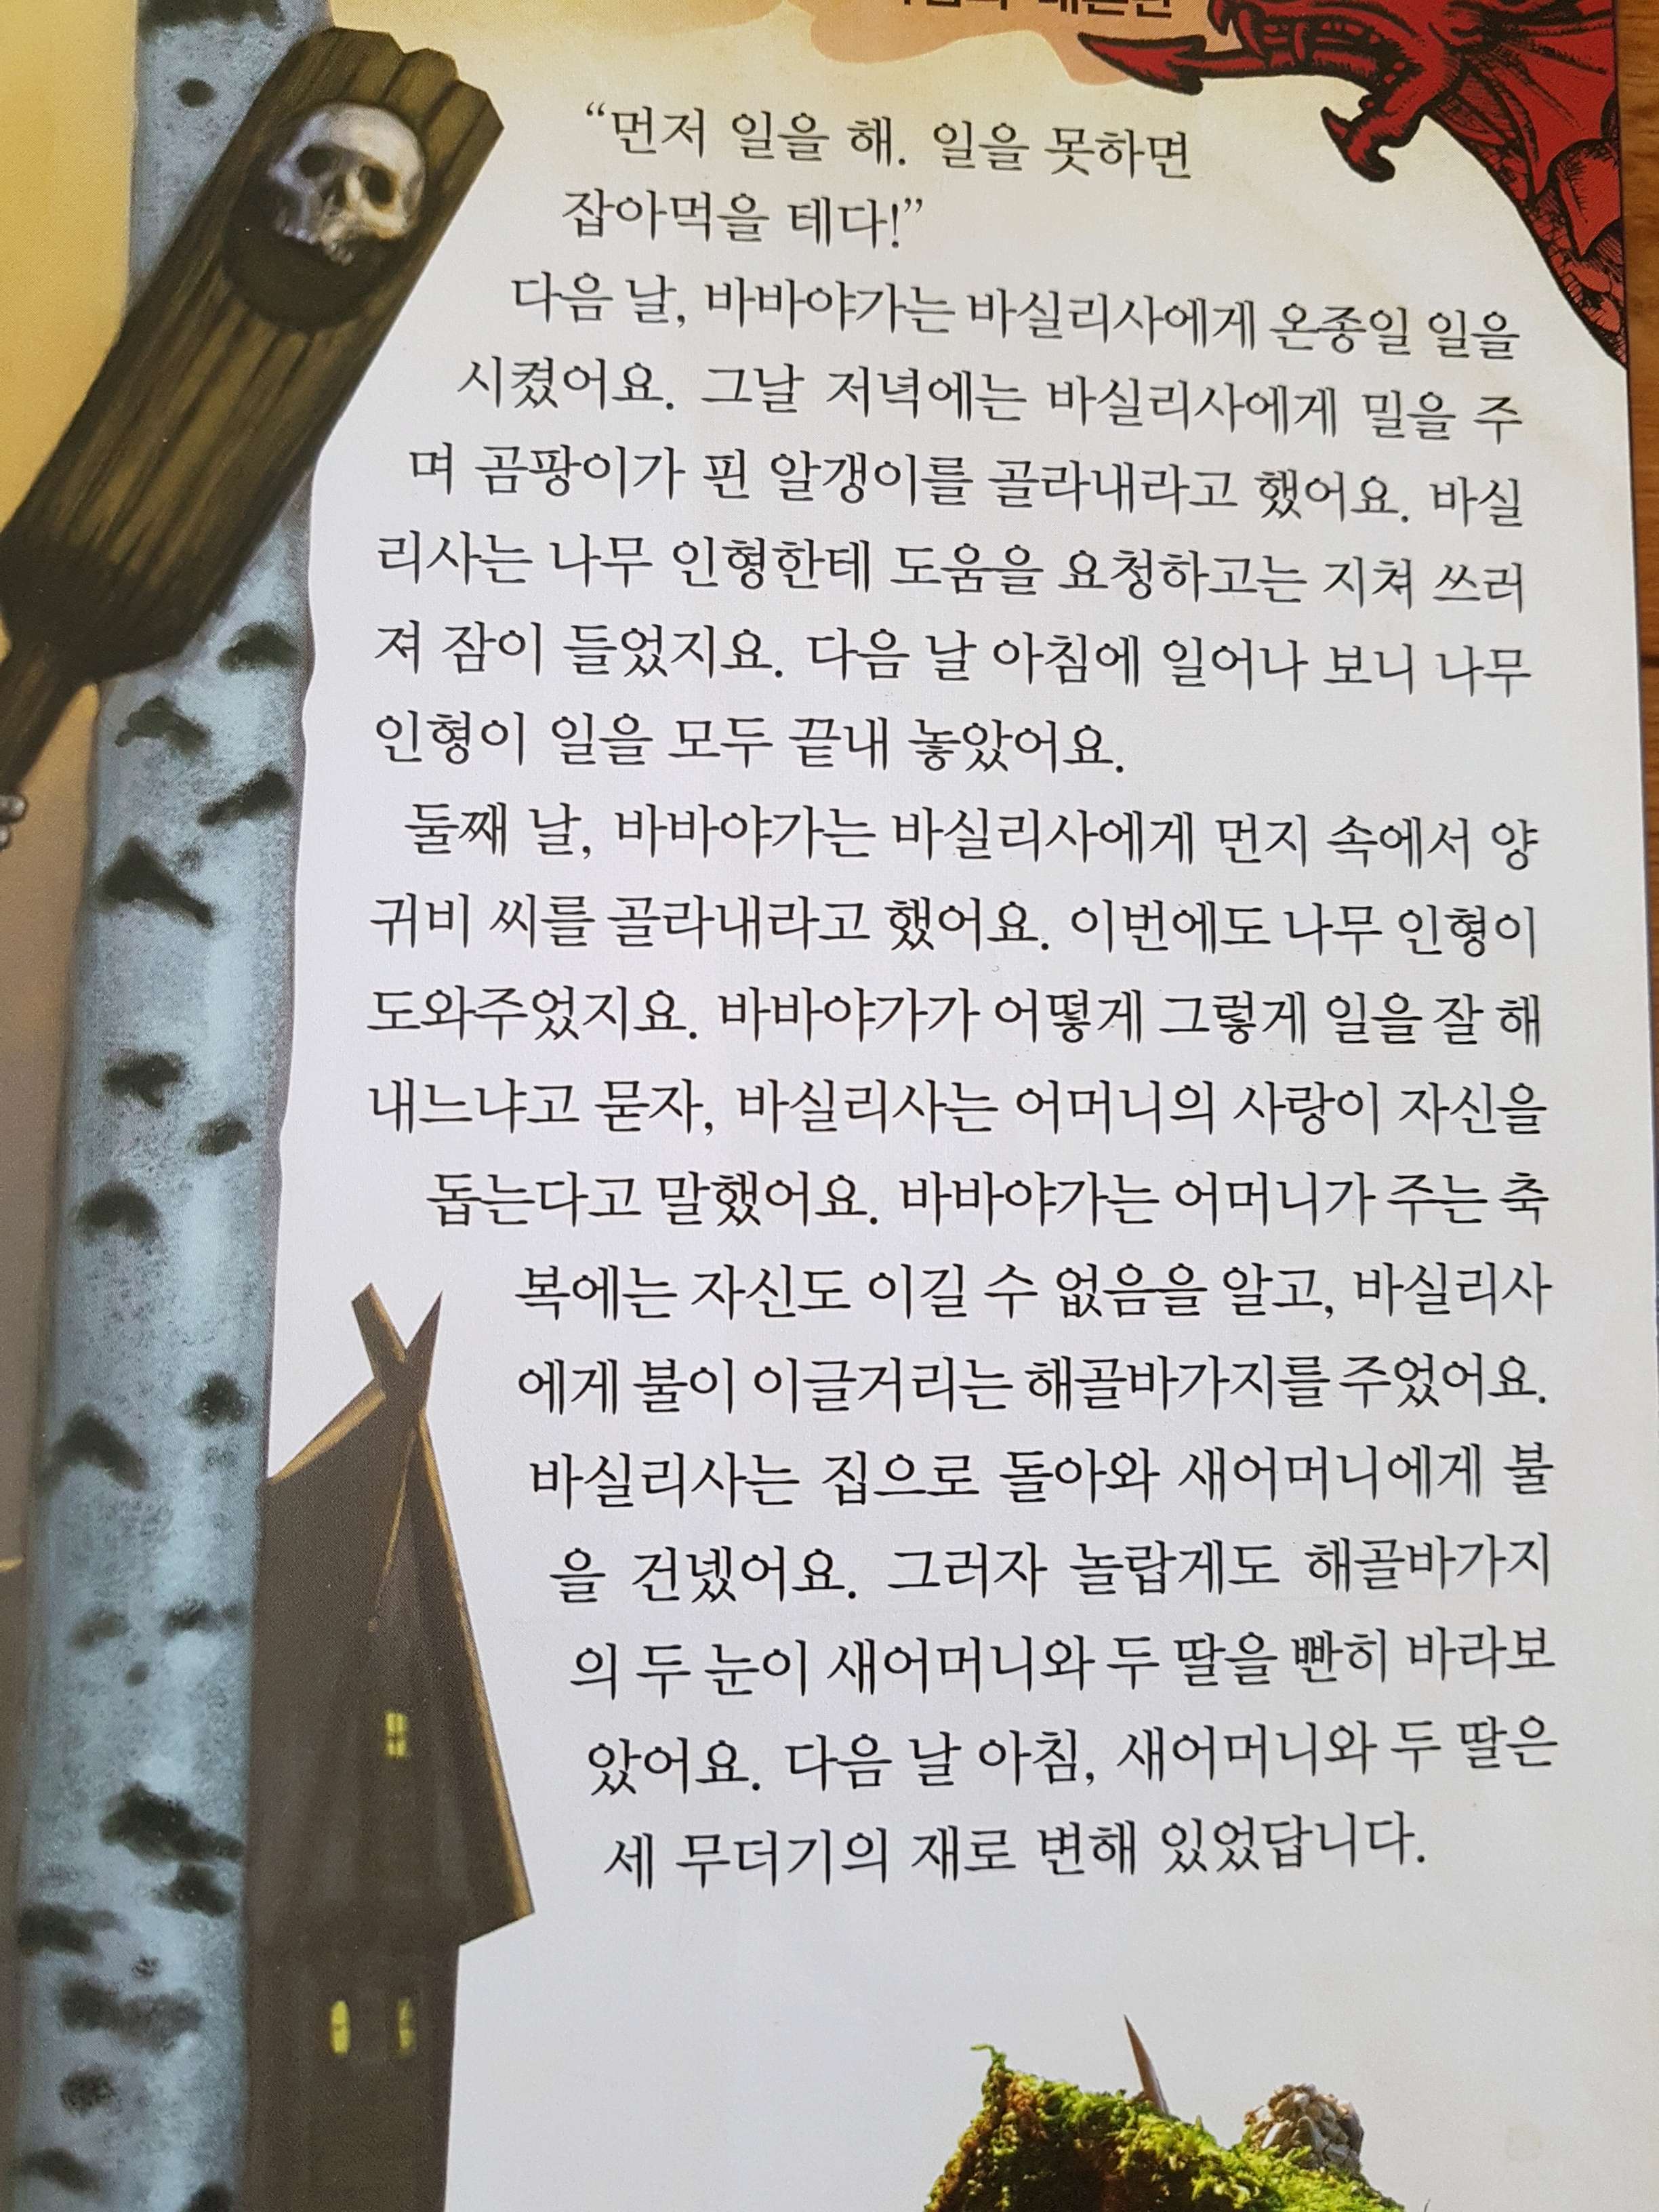 “먼저 일을 해. 일을 못하면
잡아먹을 테다!”
다음 날, 바바야가는 바실리사에게 온종일 일을
시켰어요. 그날 저녁에는 바실리사에게 밀을 주
며 곰팡이가 핀 알갱이를 골라내라고 했어요. 바실
리사는 나무 인형한테 도움을 요청하고는 지쳐 쓰러
져 잠이 들었지요. 다음 날 아침에 일어나 보니 나무
인형이 일을 모두 끝내 놓았어요.
둘째 날, 바바야가는 바실리사에게 먼지 속에서 양
귀비 씨를 골라내라고 했어요. 이번에도 나무 인형이
도와주었지요. 바바야가가 어떻게 그렇게 일을 잘 해
내느냐고 묻자, 바실리사는 어머니의 사랑이 자신을
돕는다고 말했어요. 바바야가는 어머니가 주는 축
복에는 자신도 이길 수 없음을 알고, 바실리사
에게 불이 이글거리는 해골바가지를 주었어요.
바실리사는 집으로 돌아와 새어머니에게 불
을 건넸어요. 그러자 놀랍게도 해골바가지
의 두 눈이 새어머니와 두 딸을 빤히 바라보
았어요. 다음 날 아침, 새어머니와 두 딸은
세 무더기의 재로 변해 있었답니다.